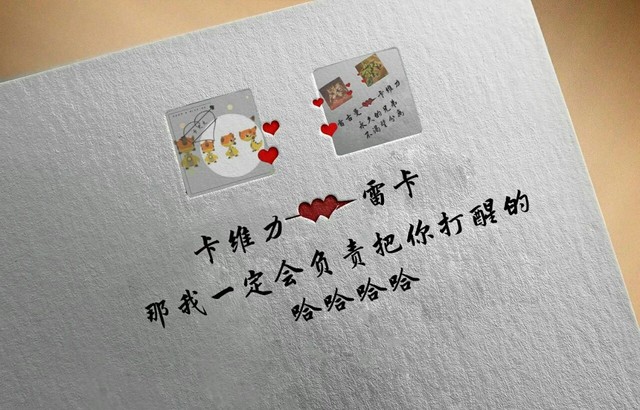 卡维力
永久的兄弟
卡维力 雷卡
那我一定会负责把你打醒的
哈哈哈哈